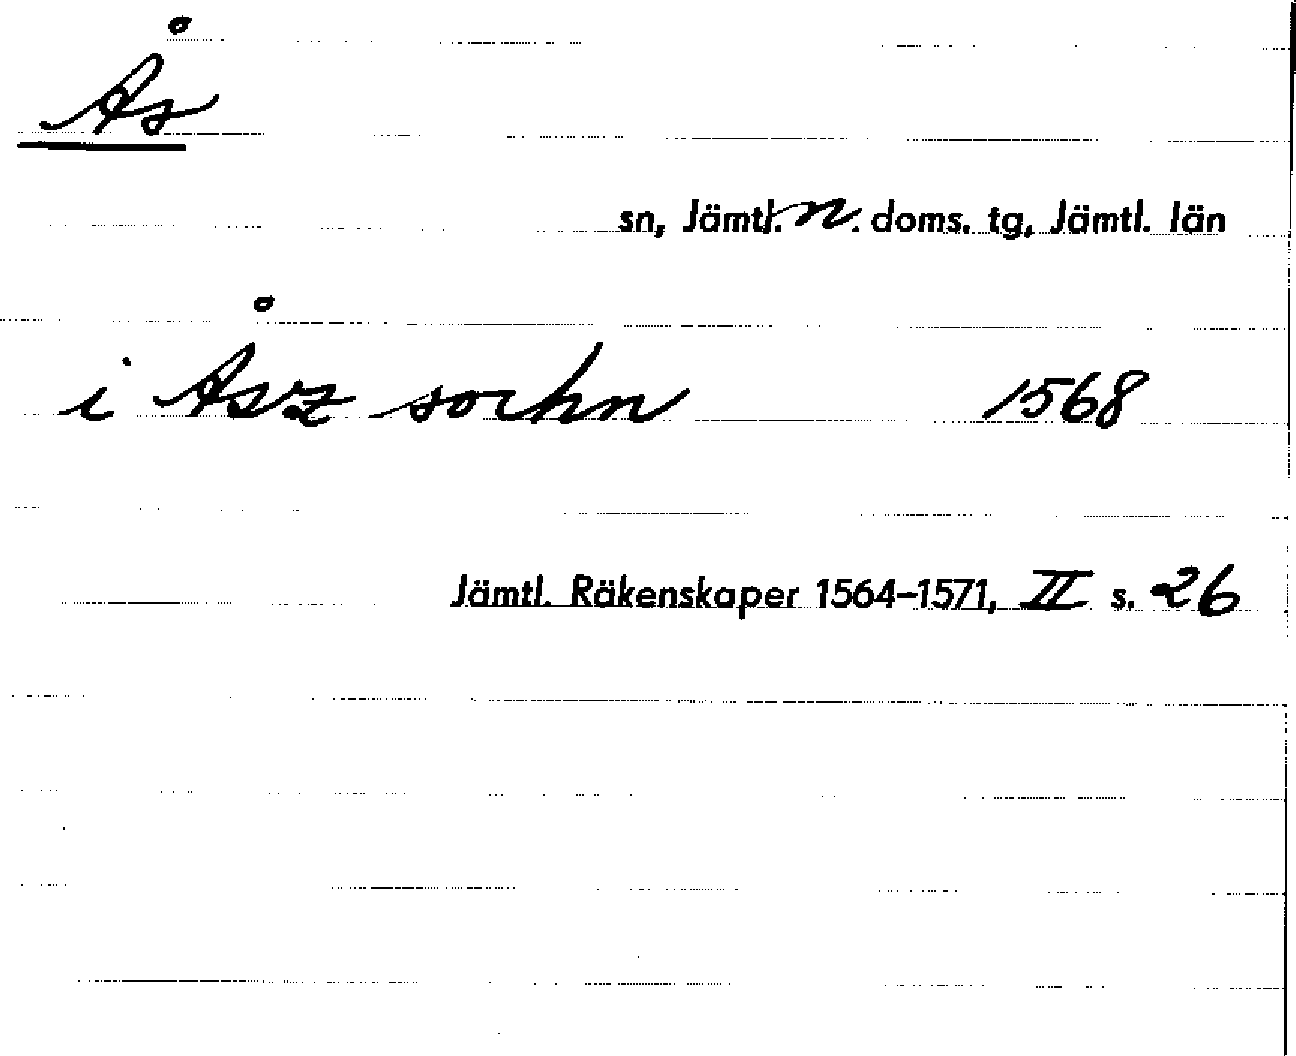 Ås
sn, Jämtl. n. doms. tg, Jämtl. län
i Åsz sochn 1568
Jämtl. Räkenskaper 1564–1571, II s. 26